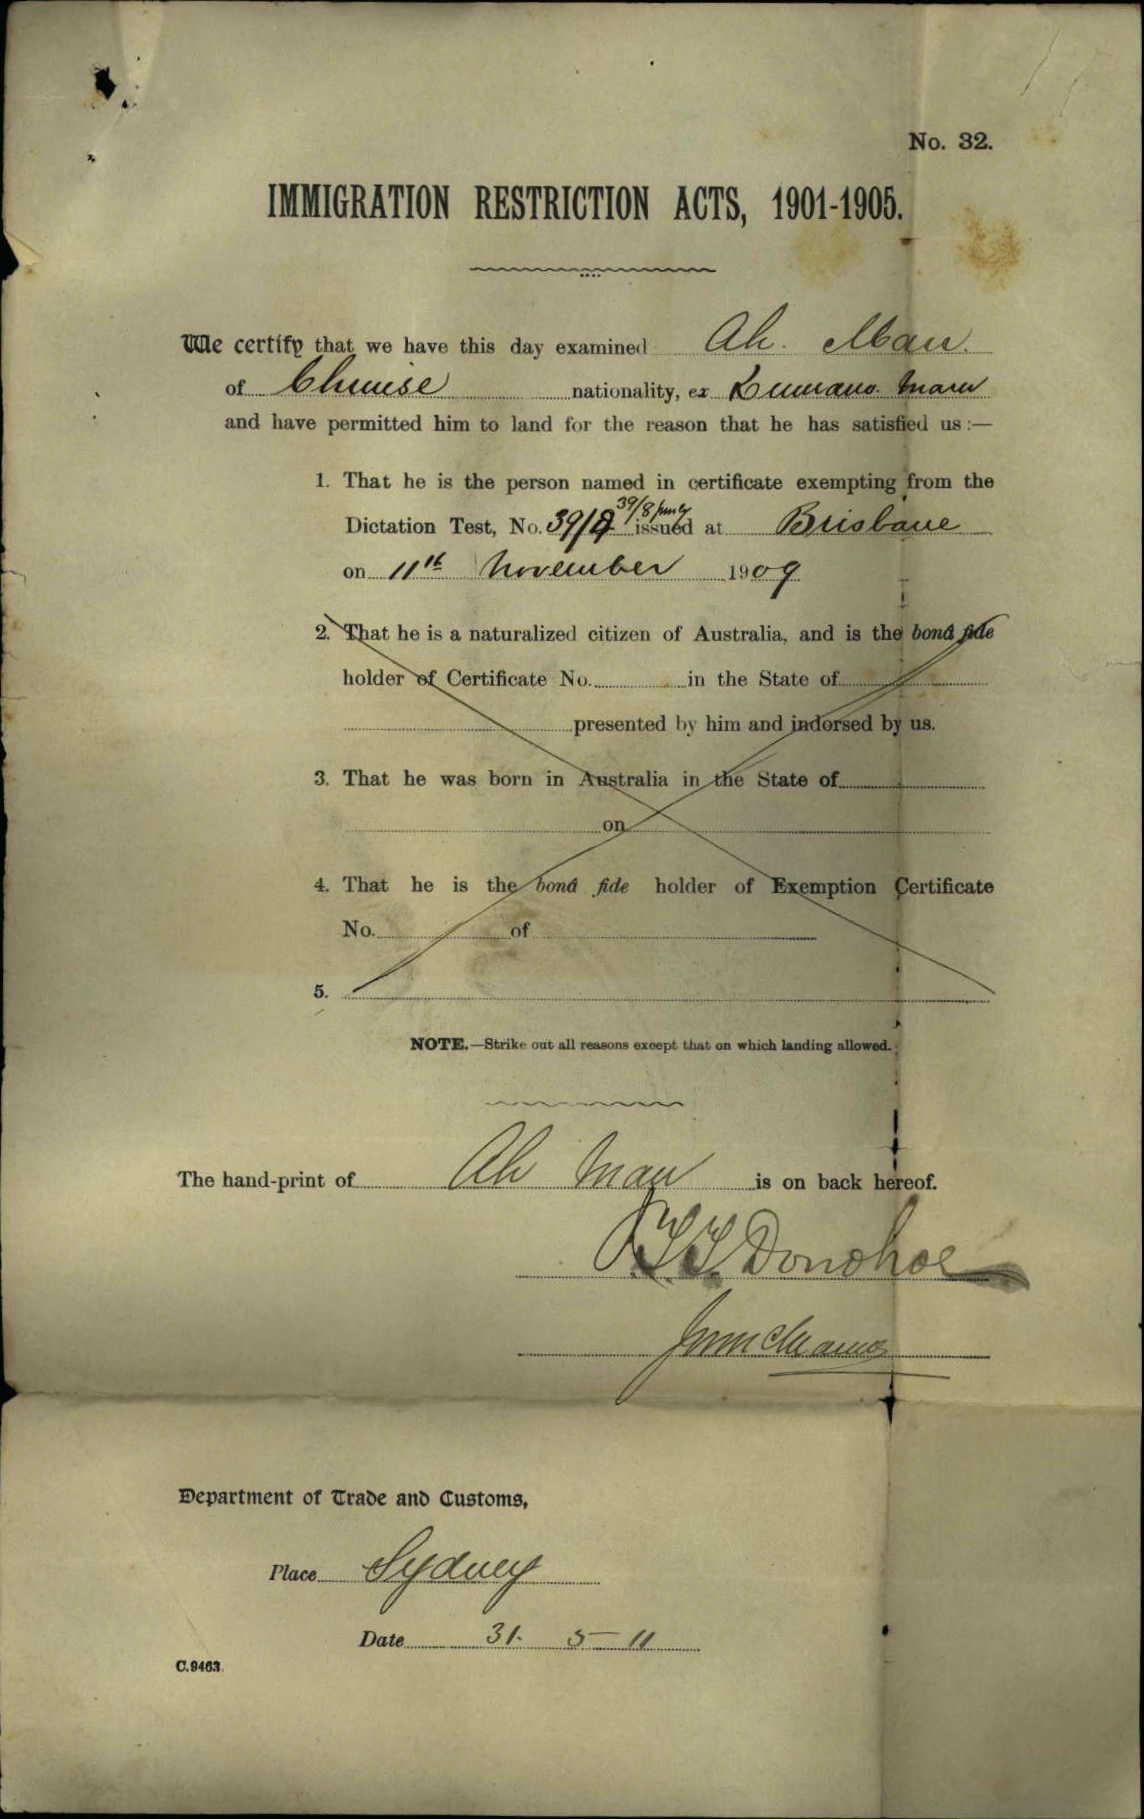 No. 32.
IMMIGRATION RESTRICTION ACTS, 1901-1905.
We certify that we have this day examined Ah. Man.
of Chinese nationality, ex Kumano Maru
and have permitted him to land for the reason that he has satisfied us :—
1. That he is the person named in certificate exempting from the
39/8
Dictation Test, No. 39/9 issued at Brisbane
on 11th November 1909
2. That he is a naturalized citizen of Australia, and is the bonâ fide
holder of Certificate No. in the State of
presented by him and indorsed by us.
3. That he was born in Australia in the State of
on
4. That he is the bonâ fide holder of Exemption Certificate
No. of
5.
NOTE.—Strike out all reasons except that on which landing allowed.
The hand-print of Ah Man is on back hereof.
Donohoe
Department of Trade and Customs,
Place Sydney
Date 31. 5-11
C.9463